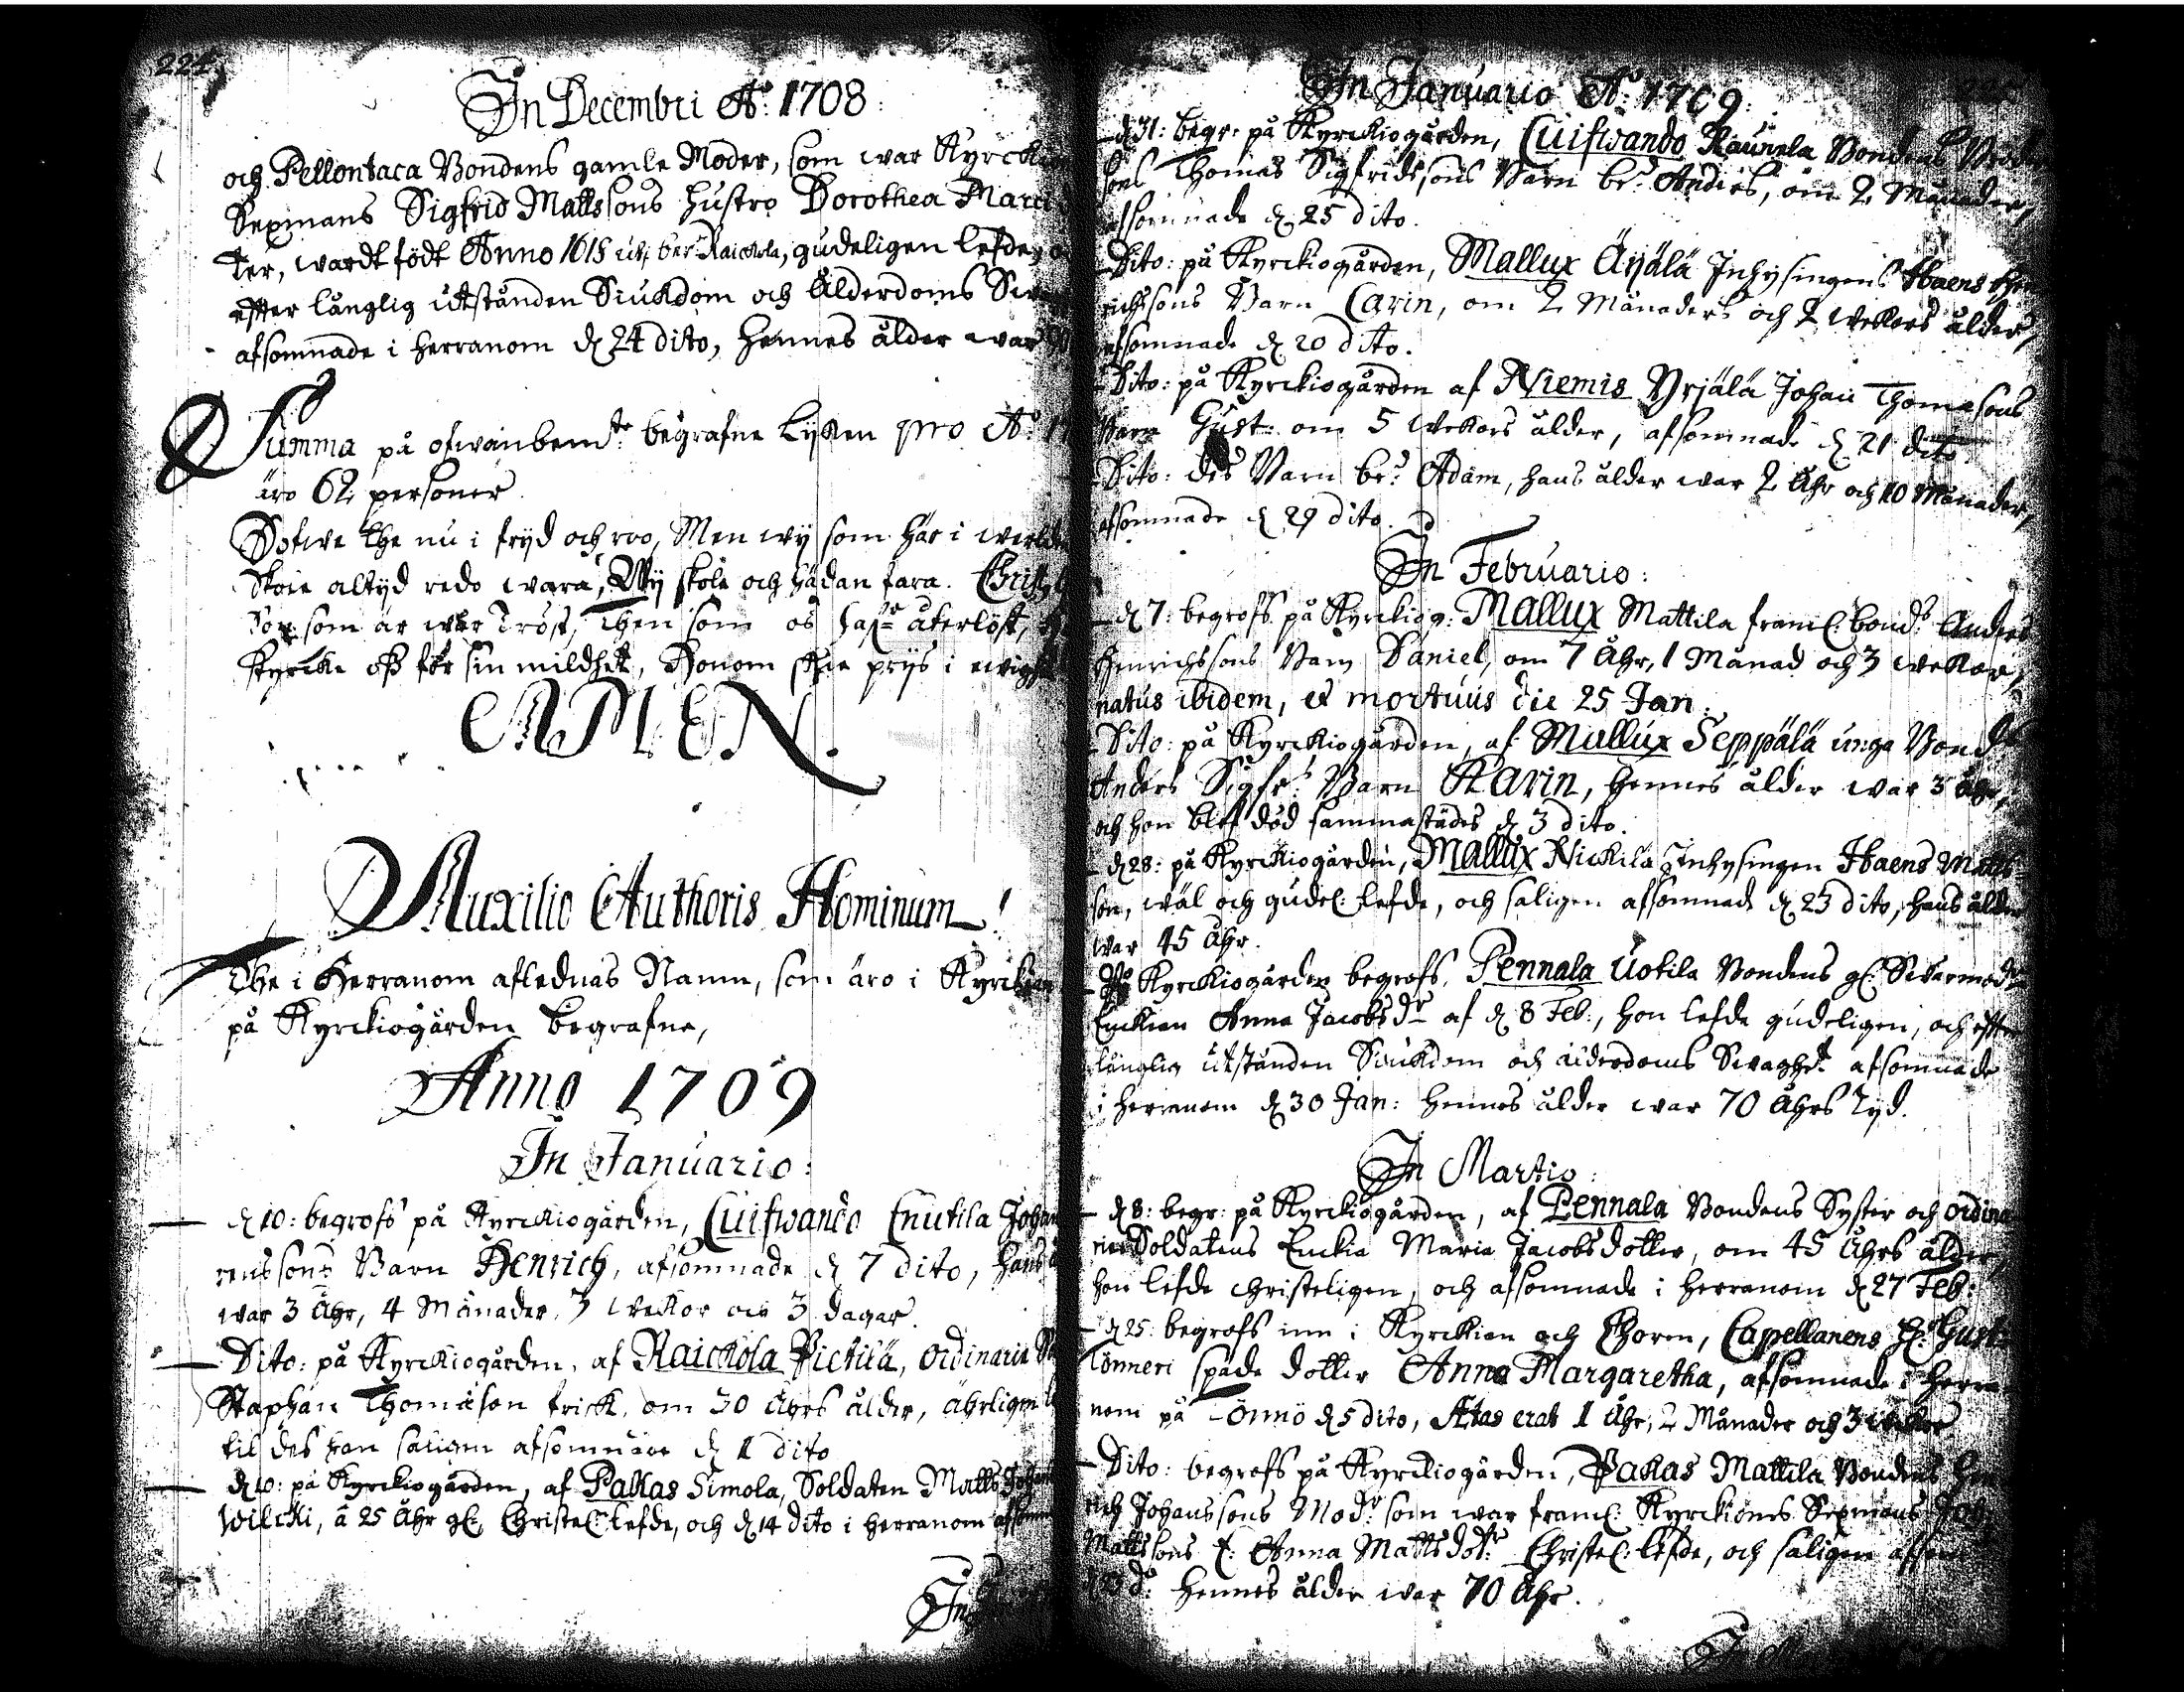 224
In Decembri Aō. 1708.
och Pellontaca Bondens gamle Moder, som war
Sexmans Sigfrid Mattssons hustro Dorothea
ter, wardt född Anno 1618 uthj ber:d Raickola, gudeligen lefde,
effter långlig utstånden Siukdom och Ålderdoms
afsomnade i herranom d 24 dito, hennes ålder war
Summa på ofwanbem:te begrafne Lijken pro Aō.
äro 62 personer.
Sofwe the nu i fryd och roo, Men wy som här i
Skole altyd redo wara, Wij skole och hädan fara.
som är wår Tröst, Then som os haf:r återlöst,
styrcke oss för sin mildhet, Honom skee prijs i
AMEN.
Auxilio Authoris Hominum
The i Herranom aflednas Namn, som äro i
på Kyrckiogården begrafne,
Anno 1709
In Januario:
d 10: begrofs på Kyrckiogården, Cuifwando Cnutila
Barn Henrich, afsomnade d 7 dito, hans
war 3 Åhr, 4 Månader, 3 wekor och 3 dagar.
Dito: på Kyrckiogården, af Raickola Pietilä, ordinarie
Staphan Thomason frisk, om 30 Åhrs ålder, ährligen
til des han saligen afsomnade d 1 dito
d 10: på Kyrckiogården, af Pakas Simola, Soldaten Matts
Wilcki, â 25 Åhr gl: Christel: lefde, och d 14 dito i herranom
In
In Januario Aō. 1709.
d 31: begr: på Kyrckiogården, Cuifwando Raurela Bondens
sons Thomas Sigfridssons Barn be:d Andrés, om 2 Månader,
afsomnade d 25 dito.
Dito: på Kyrckiogården, Mallux Äijälä Inhysingens Haens
richssons Barn Carin, om 2 Månaders och 2 wekors ålder,
afsomnade d 20 dito.
Dito: på Kyrckiogården af Niemis Yrjälä Johan Thomasons
Barn Gust: om 5 wekors ålder, afsomnade d 21 dito
Dito: des Barn be:d Adam, hans ålder war 2 Åhr och 10 Månader,
afsomnade d 29 dito.
In Februario:
d 7: begrofs på Kyrckiog: Mallux Mattila framl: bond:s Anders
Henrichssons Barn Daniel, om 7 Åhr, 1 Månad och 3 wekor,
natus ibidem, et mortuus die 25 Jan.
Dito: på Kyrckiogården, af Mallux Seppälä unga
Anders Sigfr:s Barn Karin, hennes ålder war 3 Åhr,
och hon blef död sammastädes d 3 dito.
d 28: på Kyrckiogården, Mallux Nickilä Inhysingen Haens Matts
son, wäl och gudel: lefde, och saligen afsomnade d 23 dito, hans ålder
war 45 Åhr.
På Kyrckiogården begrofs, Pennala Uotila Bondens gl: Swärmod:r
Enckian Anna Jacobsd:r af d 8 Feb:, hon lefde gudeligen, och effter
långlig utstånden Siukdom och ålderdoms Swaghet afsomnade
i herranom d 30 Jan: hennes ålder war 70 Åhrs Tyd.
In Martio:
d 8: begr: på Kyrckiogården, af Pennala Bondens Syster och ordina
rie Soldatens Enckia Maria Jacobsdotter, om 45 Åhrs ålder,
hon lefde christeligen, och afsomnade i herranom d 27 Feb:
d 25: begrofs inn i Kyrckian och Choren, Capellanens H:r Gust:
Lönneri späde dotter Anna Margaretha, afsomnade i herra
nom på Önnö d 5 dito, Ætas erat 1 Åhr, 2 Månader och 3 wekor
Dito: begrofs på Kyrckiogården, Pakas Mattila Bondens Hen
rich Johanssons Mod:r som war framl: Kyrckiones Sexmans Joh:
Mattssons E: Anna Mattsdot:r Christel: lefde, och saligen
hennes ålder war 70 Åhr.